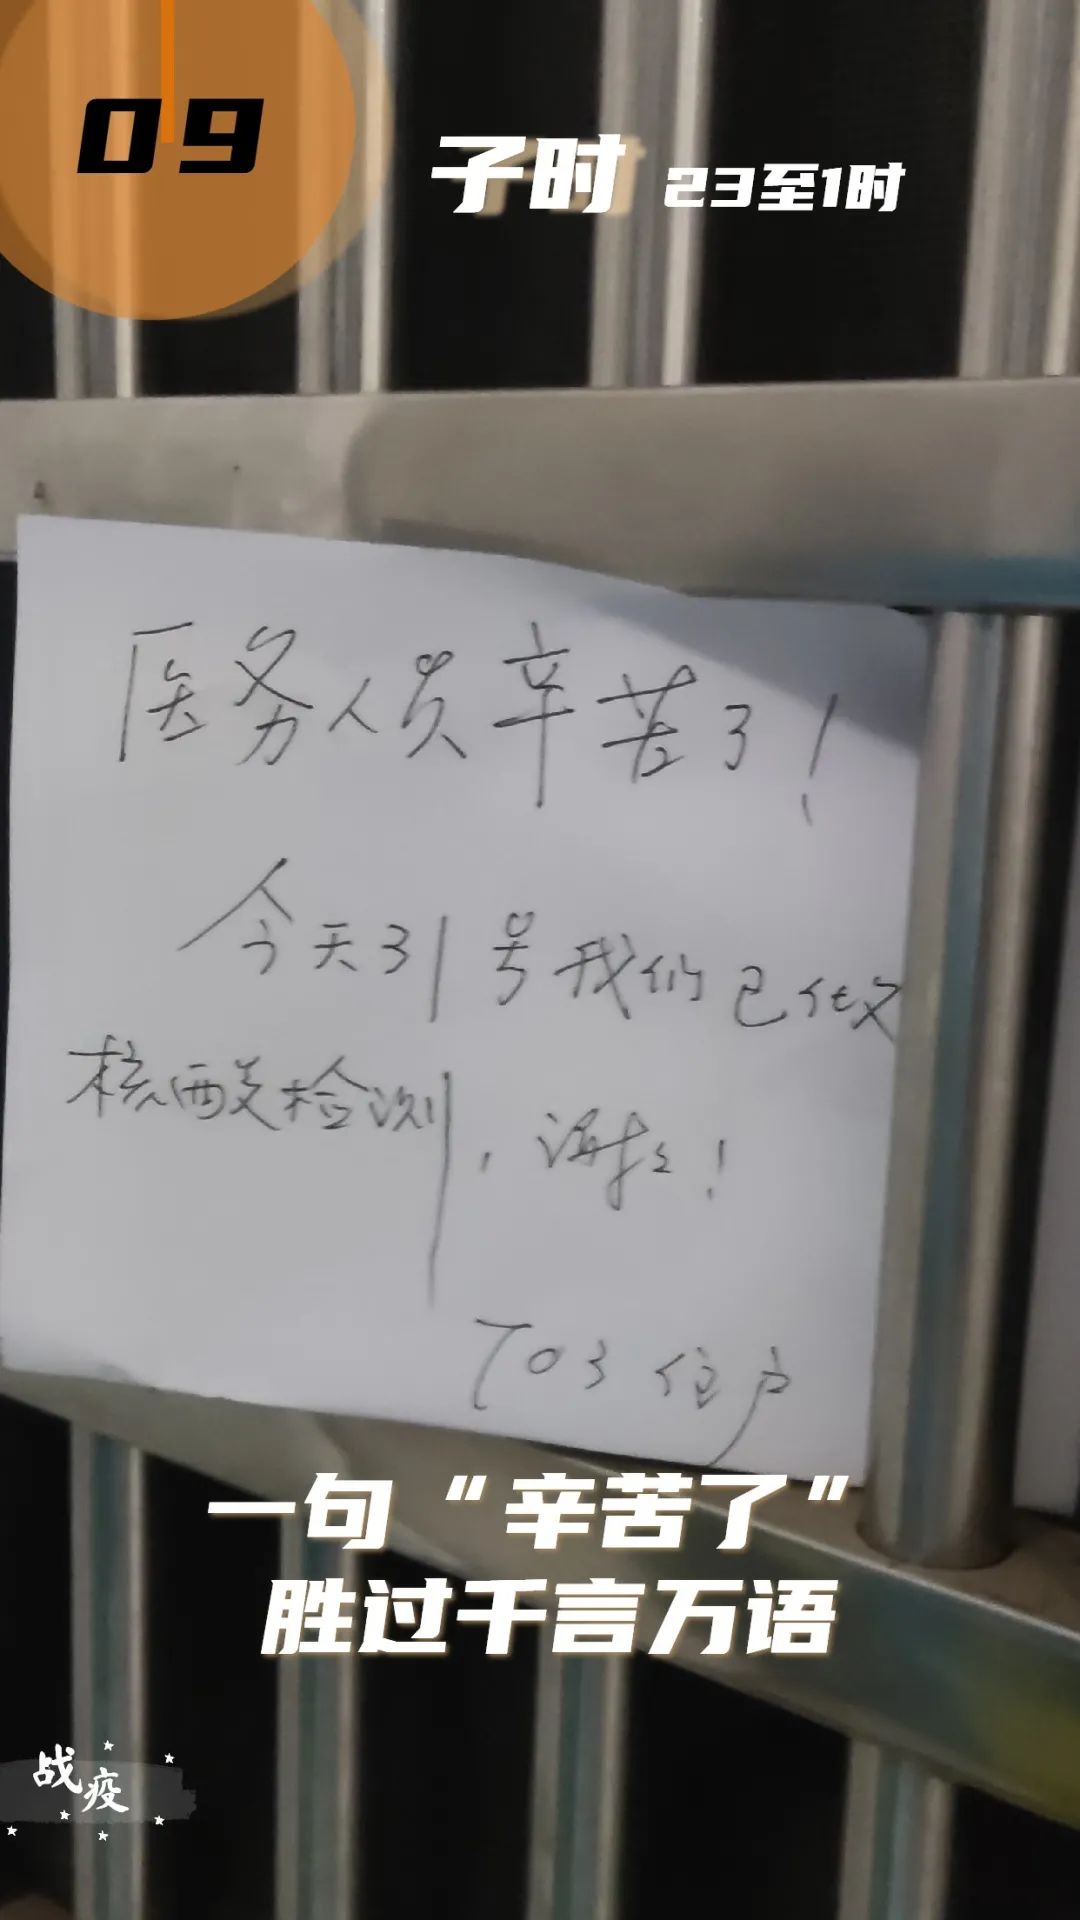 09
子时 23至1时
医务人员辛苦了！
今天31号我们已做
核酸检测，谢谢！
703住户
一句“辛苦了”
胜过千言万语
战疫